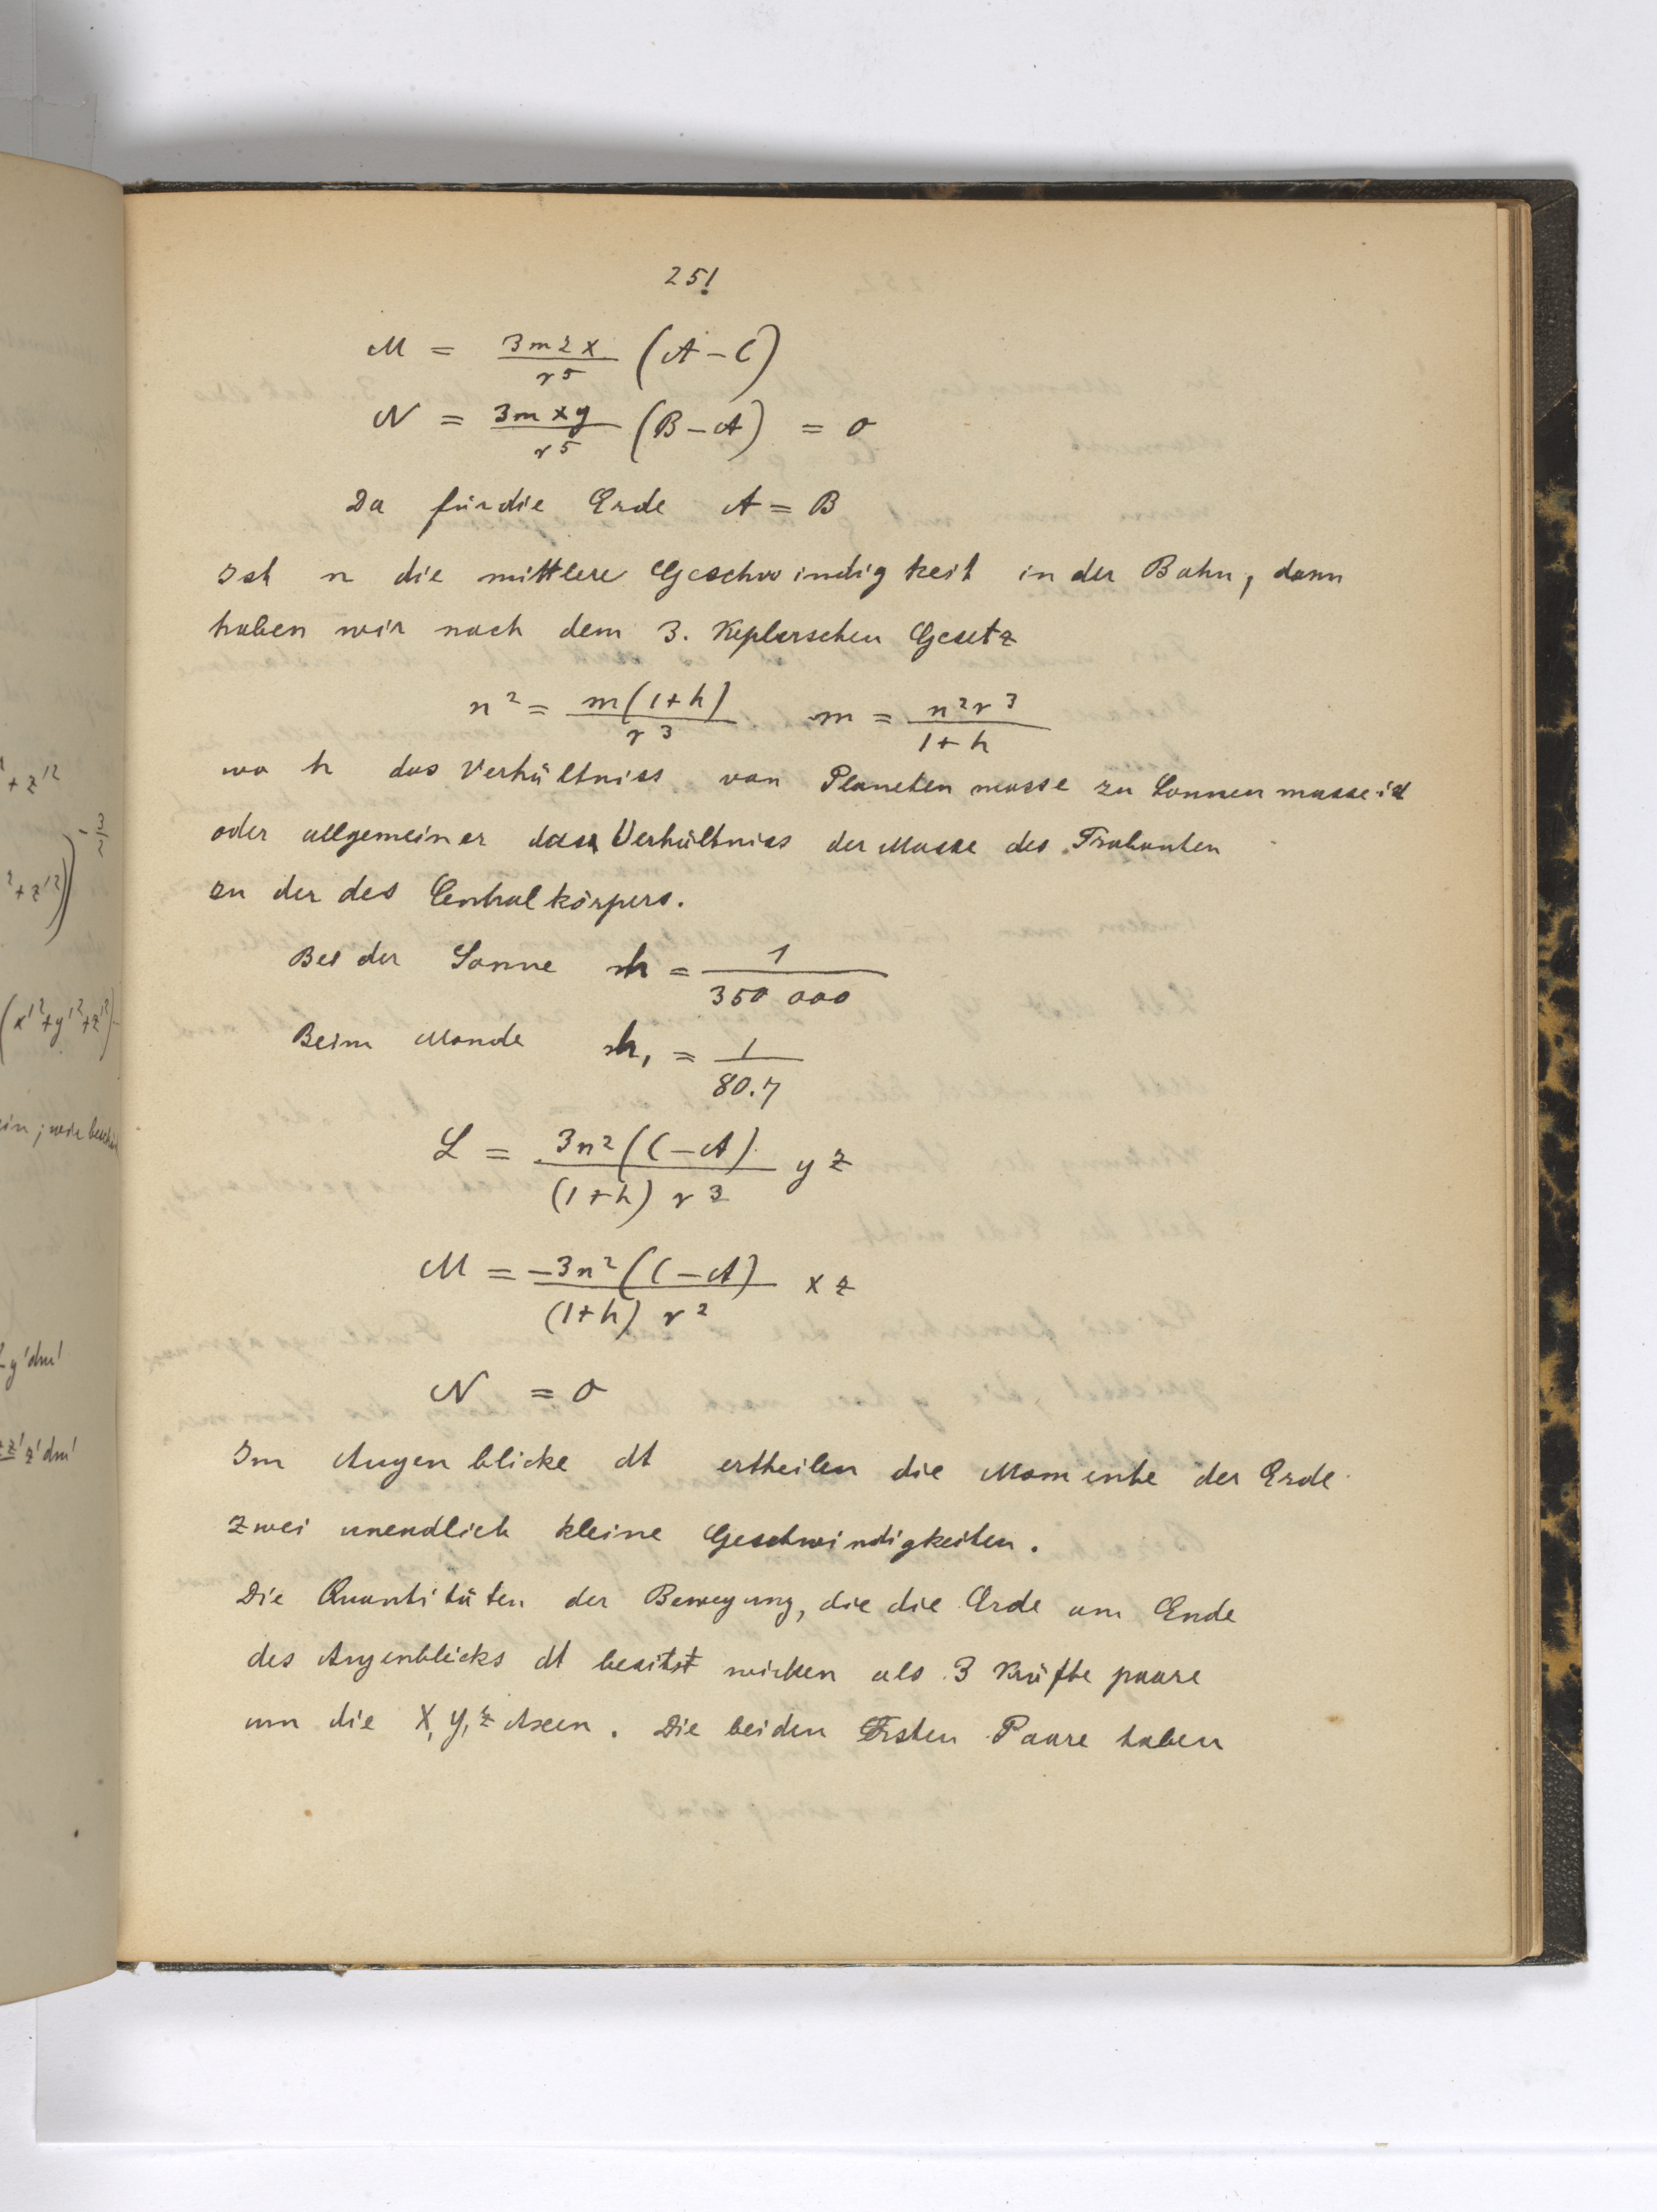 251
M = 3mzx/r⁵ (A-C)
N = 3mxy/r⁵ (B-A) = 0
Da für die Erde A = B
Ist n die mittlere Geschwindigkeit in der Bahn, dann
haben wir nach dem 3. Keplerschen Gesetz
n² = m(1+h)/r³ m = n²r³/1+h
wo h das Verhältniss von Planetenmasse zu Sonnenmasse ist
oder allgemeiner das Verhältniss der Masse des Trabanten
zu der des Centralkörpers.
Bei der Sonne h = 1/350 000
Beim Monde h, = 1/80.7
L = 3n²(C-A)/(1+h) r³ yz
M = -3n²(C-A)/(1+h) r² xz
N = 0
Im Augenblicke dt ertheilen die Momente der Erde
zwei unendlich kleine Geschwindigkeiten.
Die Quantitäten der Bewegung, die die Erde am Ende
des Augenblicks dt besitzt wirken als 3 Kräftepaare
um die X, Y, Z Axen. Die beiden Ersten Paare haben
+ z'²
²+z'²))^-3/2
(x'²+y'²+z'²)
y'dm'
zz' z'dm'